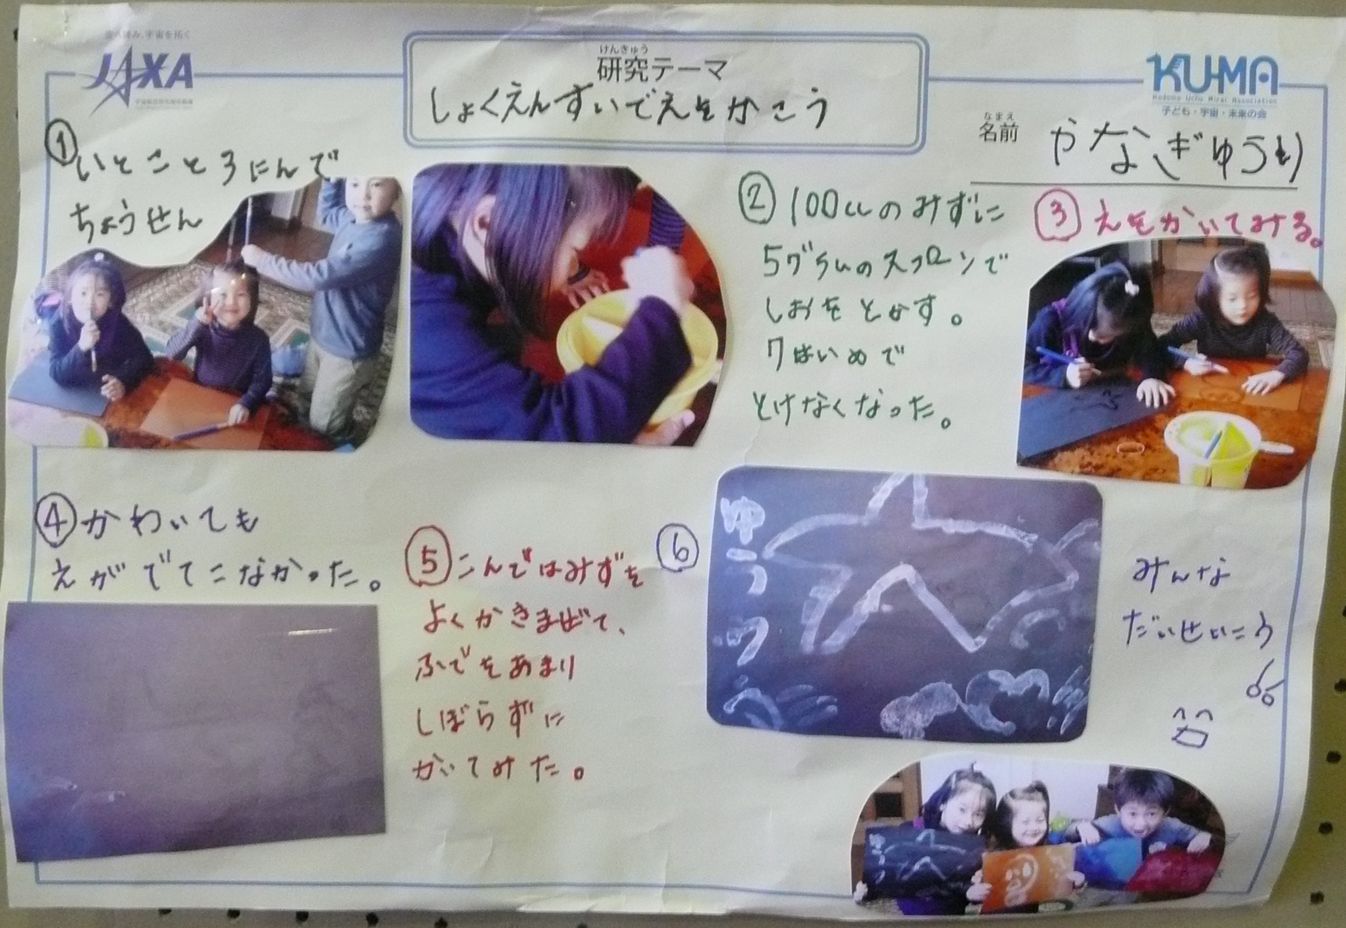 JAXA
けんきゅう
研究テーマ
しょくえんすいでえをかこう
KU-MA
Kodomo Uchu Mirai Association
子ども・宇宙・未来の会
なまえ
名前
やなぎゆうり
① いとこと3にんで
ちょうせん
② 100ccのみずに
5グラムのスプーンで
しおをとかす。
7はいめで
とけなくなった。
③ えをかいてみる。
④ かわいても
えがでてこなかった。
⑤ こんどはみずを
よくかきまぜて、
ふでをあまり
しぼらずに
かいてみた。
⑥
みんな
だいせいこう